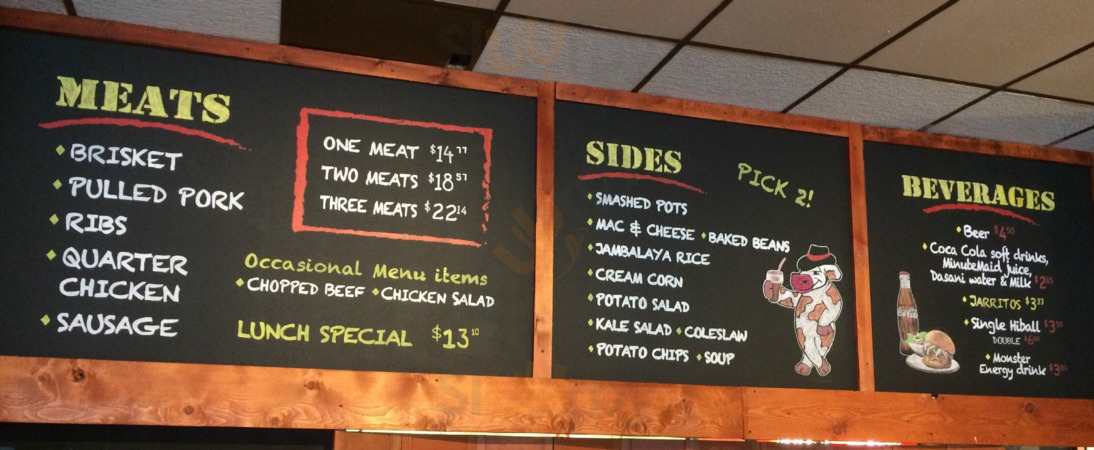 MEATS
BRISKET
PULLED PORK
RIBS
QUARTER
CHICKEN
SAUSAGE
ONE MEAT $14 77
TWO MEATS $18 57
THREE MEATS $22 14
Occasional Menu items
CHOPPED BEEF CHICKEN SALAD
LUNCH SPECIAL $13 10
SIDES
PICK 2!
SMASHED POTS
MAC & CHEESE BAKED BEANS
JAMBALAYA RICE
CREAM CORN
POTATO SALAD
KALE SALAD COLESLAW
POTATO CHIPS SOUP
BEVERAGES
Beer $4 50
Coca Cola soft drinks,
MinuteMaid juice,
Dasani water & Milk
JARRITOS $3 33
Single Hiball $3 50
DOUBLE
Monster
Energy drink
Coca-Cola